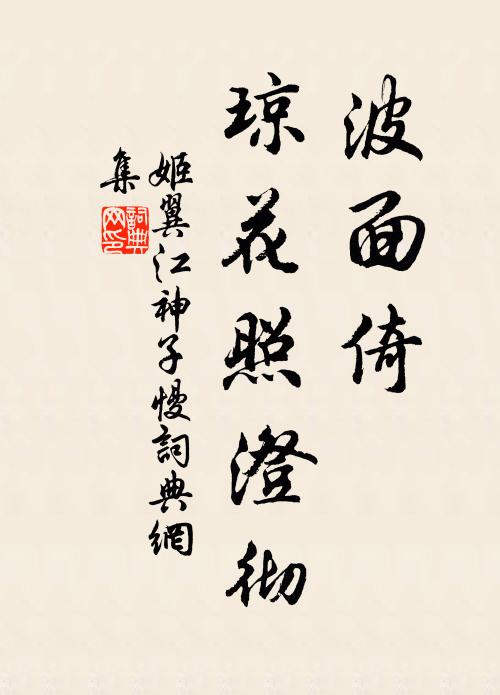 波面倚
琼花照澄彻
姬翼江神子慢詞典網
集
詞典网印